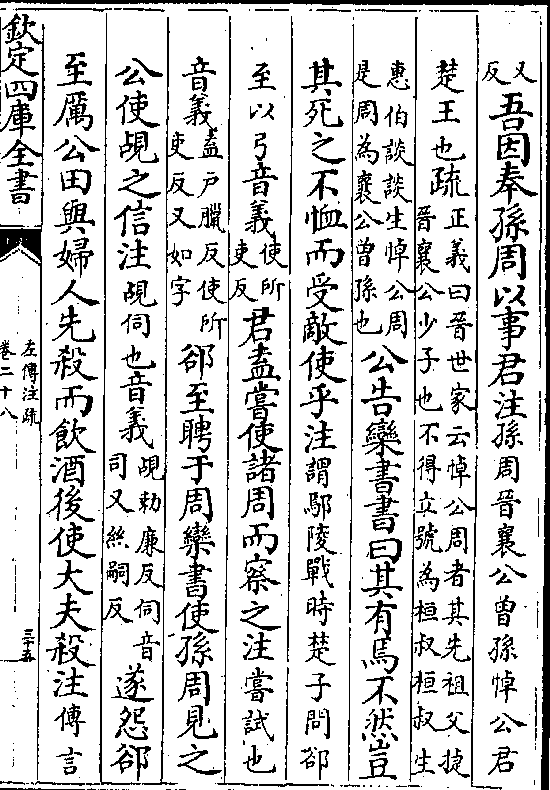 又
反
吾因奉孫周以事君注孫周晉襄公曾孫悼公君
楚王也疏
正義曰晉世家云悼公周者其先祖父捷
晉襄公少子也不得立號為桓叔桓叔生
惠伯談談生悼公周
是周為襄公曾孫也
公告欒書書曰其有焉不然豈
其死之不恤而受敵使乎注謂鄢陵戰時楚子問郤
至以弓音義
使所
吏反
君盍嘗使諸周而察之注嘗試也
音義
盍戶臘反使所
吏反又如字
郤至聘于周欒書使孫周見之
公使覘之信注覘伺也音義
覘勑廉反伺音
司又絲嗣反
遂怨郤
至厲公田與婦人先殺而飲酒後使大夫殺注傳言
欽定四庫全書
左傳注疏
卷二十八
三十五